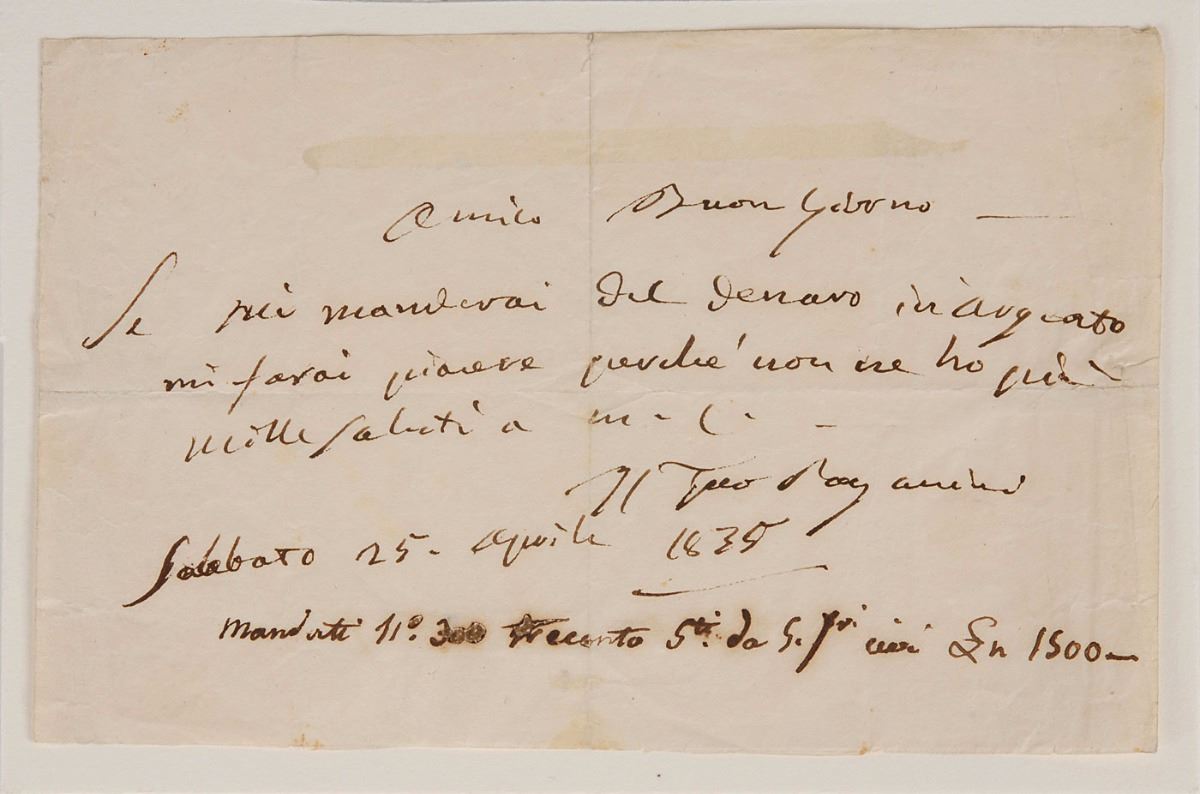 Amico Buon Giorno —
Se mi manderai del denaro in argento
mi farai piacere perché non ne ho più
mille saluti a m. C. —
Il Tuo Paganini
Sabbato 25. Aprile 1835
Mandati n.º 300 trecento da 5. fri Ln 1500 —